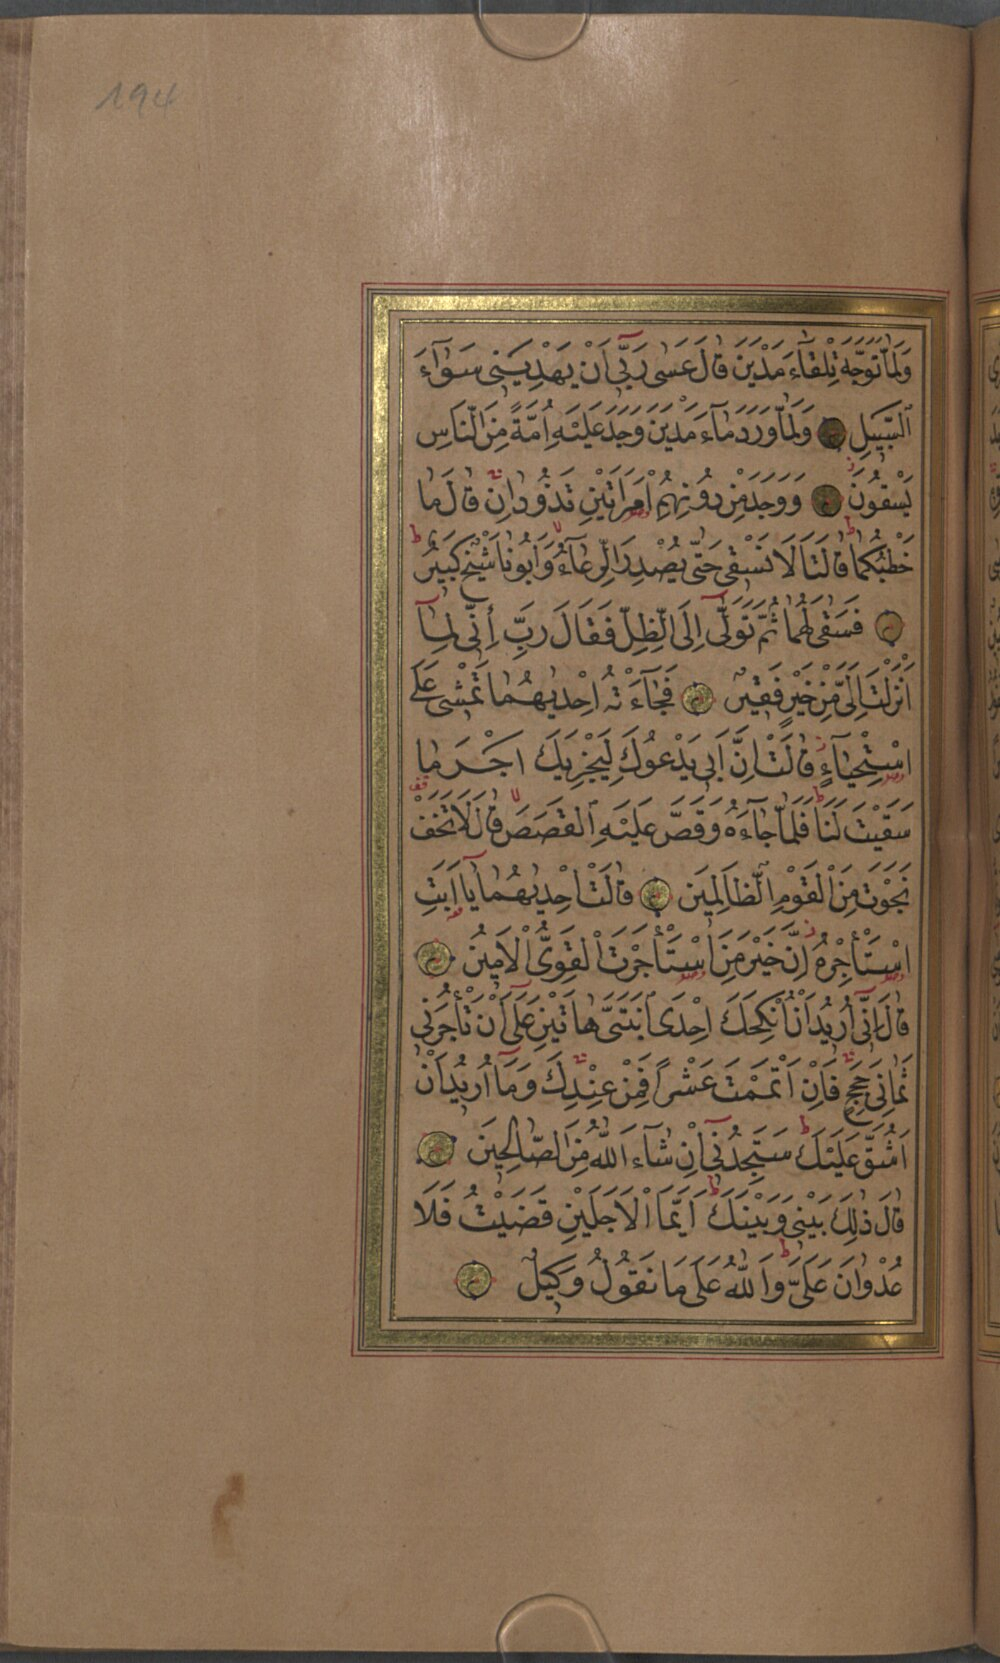 194
وَلَمَّا تَوَجَّهَ تِلْقَآءَ مَدْيَنَ قَالَ عَسٰى رَبِّٓى اَنْ يَهْدِيَنِى سَوَآءَ
السَّبِيلِ وَلَمَّا وَرَدَ مَآءَ مَدْيَنَ وَجَدَ عَلَيْهِ اُمَّةً مِنَ النَّاسِ
يَسْقُونَ وَوَجَدَ مِنْ دُونِهِمُ امْرَاَتَيْنِ تَذُودَانِ قَالَ مَا
خَطْبُكُمَا قَالَتَا لَا نَسْقِى حَتّٰى يُصْدِرَ الرِّعَآءُ وَاَبُونَا شَيْخٌ كَبِيرٌ
فَسَقٰى لَهُمَا ثُمَّ تَوَلّٰٓى اِلَى الظِّلِّ فَقَالَ رَبِّ اِنِّى لِمَآ
اَنْزَلْتَ اِلَىَّ مِنْ خَيْرٍ فَقِيرٌ فَجَآءَتْهُ اِحْدٰيهُمَا تَمْشِى عَلَى
اسْتِحْيَآءٍ قَالَتْ اِنَّ اَبِى يَدْعُوكَ لِيَجْزِيَكَ اَجْرَ مَا
سَقَيْتَ لَنَا فَلَمَّا جَآءَهُ وَقَصَّ عَلَيْهِ الْقَصَصَ قَالَ لَا تَخَفْ
نَجَوْتَ مِنَ الْقَوْمِ الظَّالِمِينَ قَالَتْ اِحْدٰيهُمَا يَآ اَبَتِ
اسْتَأْجِرْهُ اِنَّ خَيْرَ مَنِ اسْتَأْجَرْتَ الْقَوِىُّ الْاَمِينُ
قَالَ اِنِّٓى اُرِيدُ اَنْ اُنْكِحَكَ اِحْدَى ابْنَتَىَّ هَاتَيْنِ عَلٰٓى اَنْ تَأْجُرَنِى
ثَمَانِىَ حِجَجٍ فَاِنْ اَتْمَمْتَ عَشْرًا فَمِنْ عِنْدِكَ وَمَآ اُرِيدُ اَنْ
اَشُقَّ عَلَيْكَ سَتَجِدُنِٓى اِنْ شَآءَ اللّٰهُ مِنَ الصَّالِحِينَ
قَالَ ذٰلِكَ بَيْنِى وَبَيْنَكَ اَيَّمَا الْاَجَلَيْنِ قَضَيْتُ فَلَا
عُدْوَانَ عَلَىَّ وَاللّٰهُ عَلٰى مَا نَقُولُ وَكِيلٌ